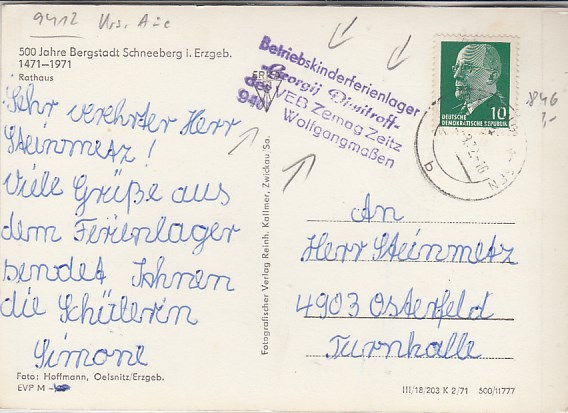 9412
500 Jahre Bergstadt Schneeberg i. Erzgeb.
1471–1971
Rathaus
Sehr verehrter Herr
Steinmetz!
Viele Grüße aus
dem Ferienlager
sendet Ihnen
die Schülerin
Simone
Foto: Hoffmann, Oelsnitz/Erzgeb.
EVP M
Fotografischer Verlag Reinh. Kallmer, Zwickau/Sa.
Betriebskinderferienlager
Georgij Dimitroff
des VEB Zemag Zeitz
940
Wolfgangmaßen
10
DEUTSCHE
DEMOKRATISCHE REPUBLIK
b
846
An
Herr Steinmetz
4903 Osterfeld
Turnhalle
III/18/203 K 2/71 500/11777